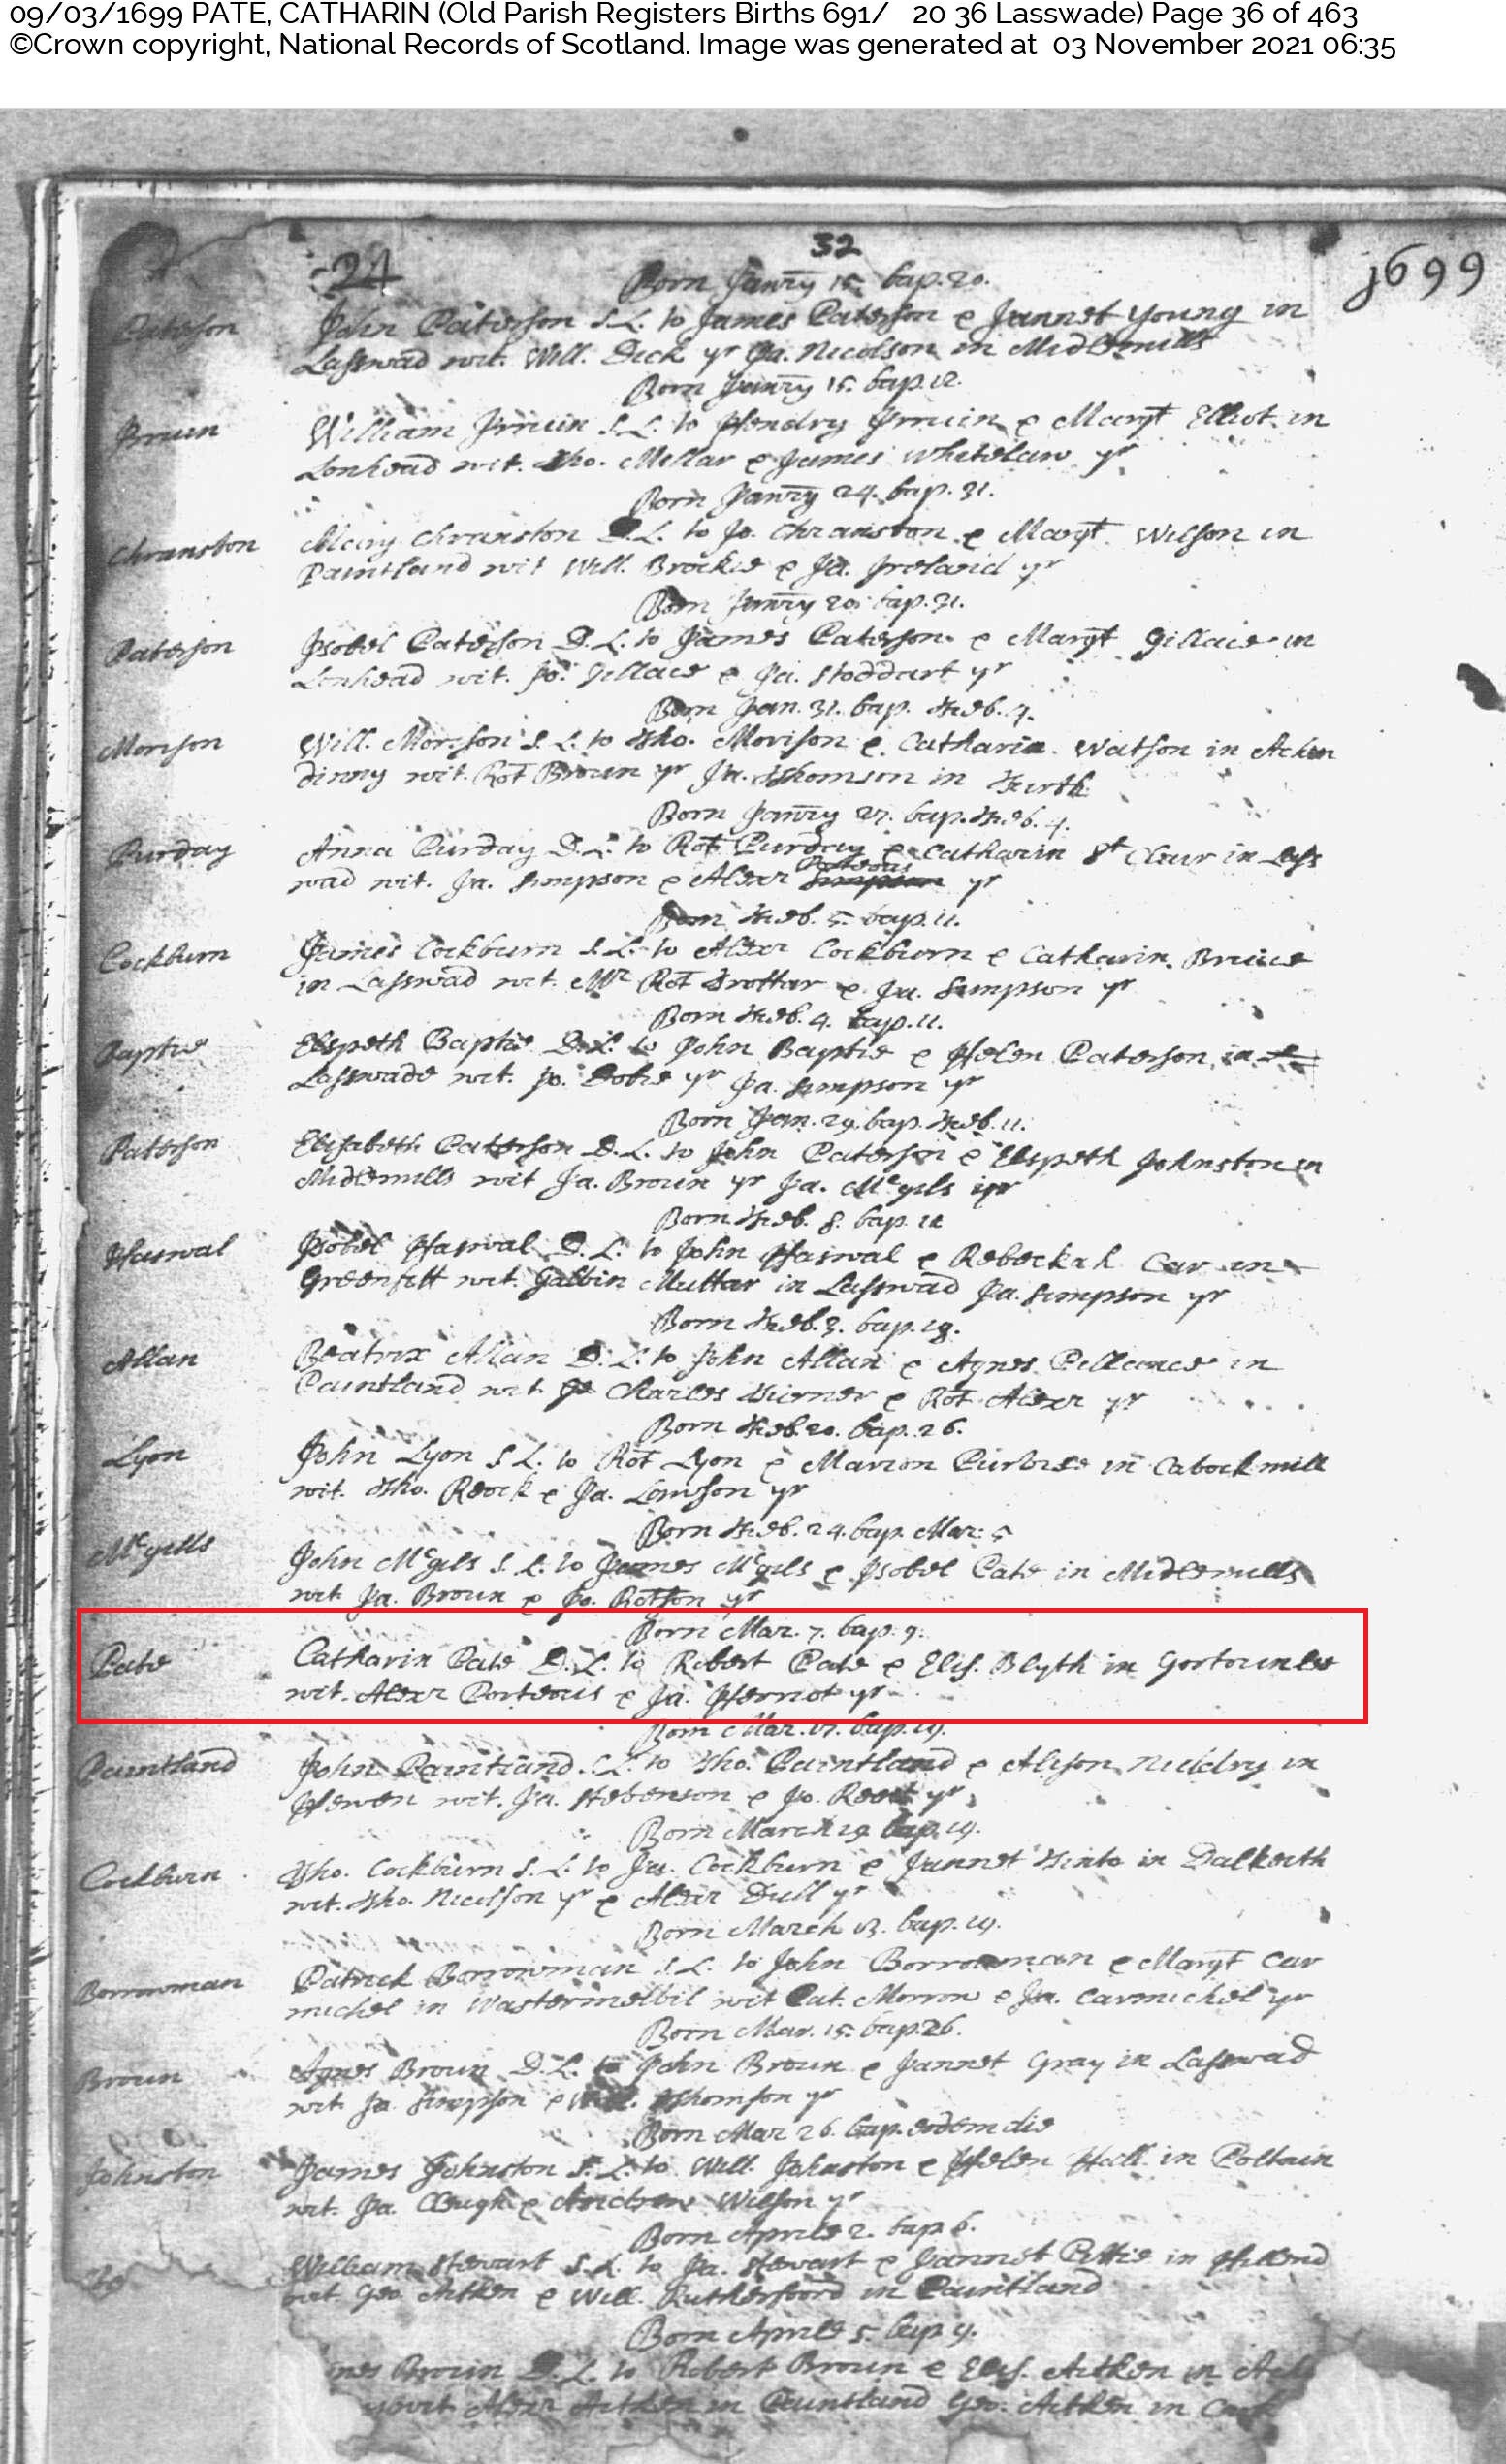 09/03/1699 PATE, CATHARIN (Old Parish Registers Births 691/ 20 36 Lasswade) Page 36 of 463
©Crown copyright, National Records of Scotland. Image was generated at 03 November 2021 06:35
32
24
1699
Born Janry 15. bap. 20.
Paterson
John Paterson S.L. to James Paterson & Jannet Young in
Lasswad wit. Will. Dick yr Ja. Nicolson in Midlemills
Born Janry 15. bap.
William S.L. to Hendry & Margt Elliot in
Lonhead wit. Tho. Mellar & James Whitelaw yr
Born Janry 24. bap. 31.
Chranston
Mary Chranston D.L. to Jo. Chranston & Margt Wilson in
Paintland wit Will. Brockie & Ja. Ireland yr
Born Janry 20. bap. 31.
Paterson
Isobel Paterson D.L. to James Paterson & Margt Gillace in
Lonhead wit. Jo. Gillace & Ja. Stoddart yr
Born Jan. 31. bap. Feb. 4.
Morison
Will. Morison S.L. to Tho. Morison & Catharin Watson in Acken
dinny wit. Rot Broun yr Ja. Thomson in Firth
Born Janry 27. bap. Feb. 4.
Purday
Anna Purday D.L. to Rot Purday & Catharin St Clair in Lass
wad wit. Ja. Simpson & Alexr Porteous Simpson yr
Born Feb. 5. bap. 11.
Cockburn
James Cockburn S.L. to Alexr Cockburn & Catharin Bruice
in Lasswad wit. Mr Rot Trottar & Ja. Simpson yr
Born Feb. 4. bap. 11.
Baptie
Elspeth Baptie D.L. to John Baptie & Helen Paterson in
Lasswade wit. Jo. Dobie yr Ja. Simpson yr
Born Jan. 29. bap. Feb. 11.
Paterson
Elisabeth Paterson D.L. to John Paterson & Elspeth Johnston in
Midlemills wit Ja. Broun yr Ja. Mcgils yr
Born Feb. 8. bap.
Haswal
Isobel Haswal D.L. to John Haswal & Rebeckah Car in
Greenfitt wit. Galbin Muttar in Lasswad Ja. Simpson yr
Born Feb. 3. bap. 19.
Allan
Beatrix Allan D.L. to John Allan & Agnes Pillance in
Paintland wit Charles & Rot Alexr yr
Born Feb. 20. bap. 26.
Lyon
John Lyon S.L. to Rot Lyon & Marion Purdise in Cabockmill
wit. Tho. Reock & Ja. Lowson yr
Born Feb. 24. bap. Mar. 5
Mcgills
John Mcgils S.L. to James Mcgils & Isobel Pate in Midlemills
wit Ja. Broun & Jo. yr
Born Mar. 7. bap. 9.
Pate
Catharin Pate D.L. to Robert Pate & Elis. Blyth in Gortounlee
wit. Alexr Porteous & Ja. Herriot yr
Born Mar. 17. bap. 19.
Paintland
John Paintland S.L. to Tho. Paintland & Alison Niddry in
Hewen wit. Ja. Stevenson & Jo. yr
Born March 19 bap. 19.
Cockburn
Tho. Cockburn S.L. to Ja. Cockburn & Jannet Finto in Dalkeith
wit. Tho. Nicolson yr & Alexr Dull yr
Born March 13. bap. 19.
Borrowman
Patrick Borrowman S.L. to John Borrowman & Margt Car
michel in wit Pat. Morron & Ja. Carmichel yr
Born Mar. 15. bap. 26.
Broun
Agnes Broun D.L. to John Broun & Jannet Gray in Lasswad
wit Ja. Simpson & Will. Thomson yr
Born Mar 26. bap. eodem die
Johnston
James Johnston S.L. to Will. Johnston & Helen Hall in Poltoun
wit. Ja. Clough & Andrew Wilson yr
Born Aprile 2. bap 6.
William Stewart S.L. to Ja. Stewart & Jannet Pittie in Hillend
wit. Geo. Aitken & Will. Rutherfoord in Paintland
Born Aprile 5. bap 9.
Broun D.L. to Robert Broun & Elis. Aitken in
wit Alexr Aitken in Paintland Geo. Aitken in